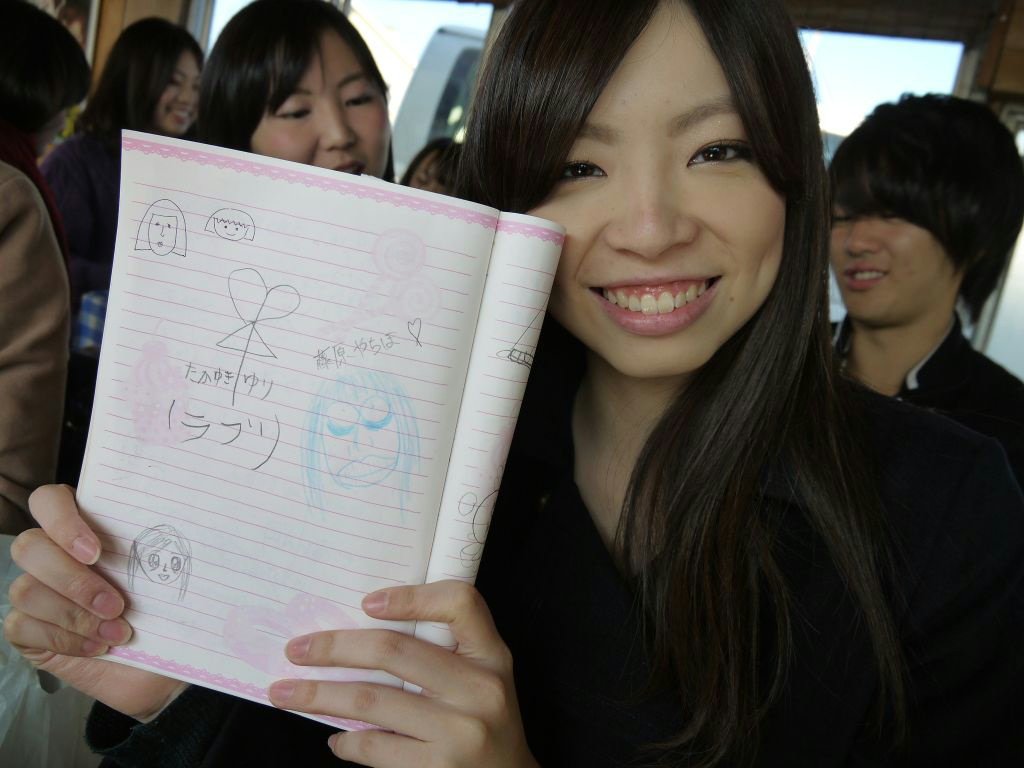 藤原やちほ♡
たかゆき ゆり
(ラブリ)